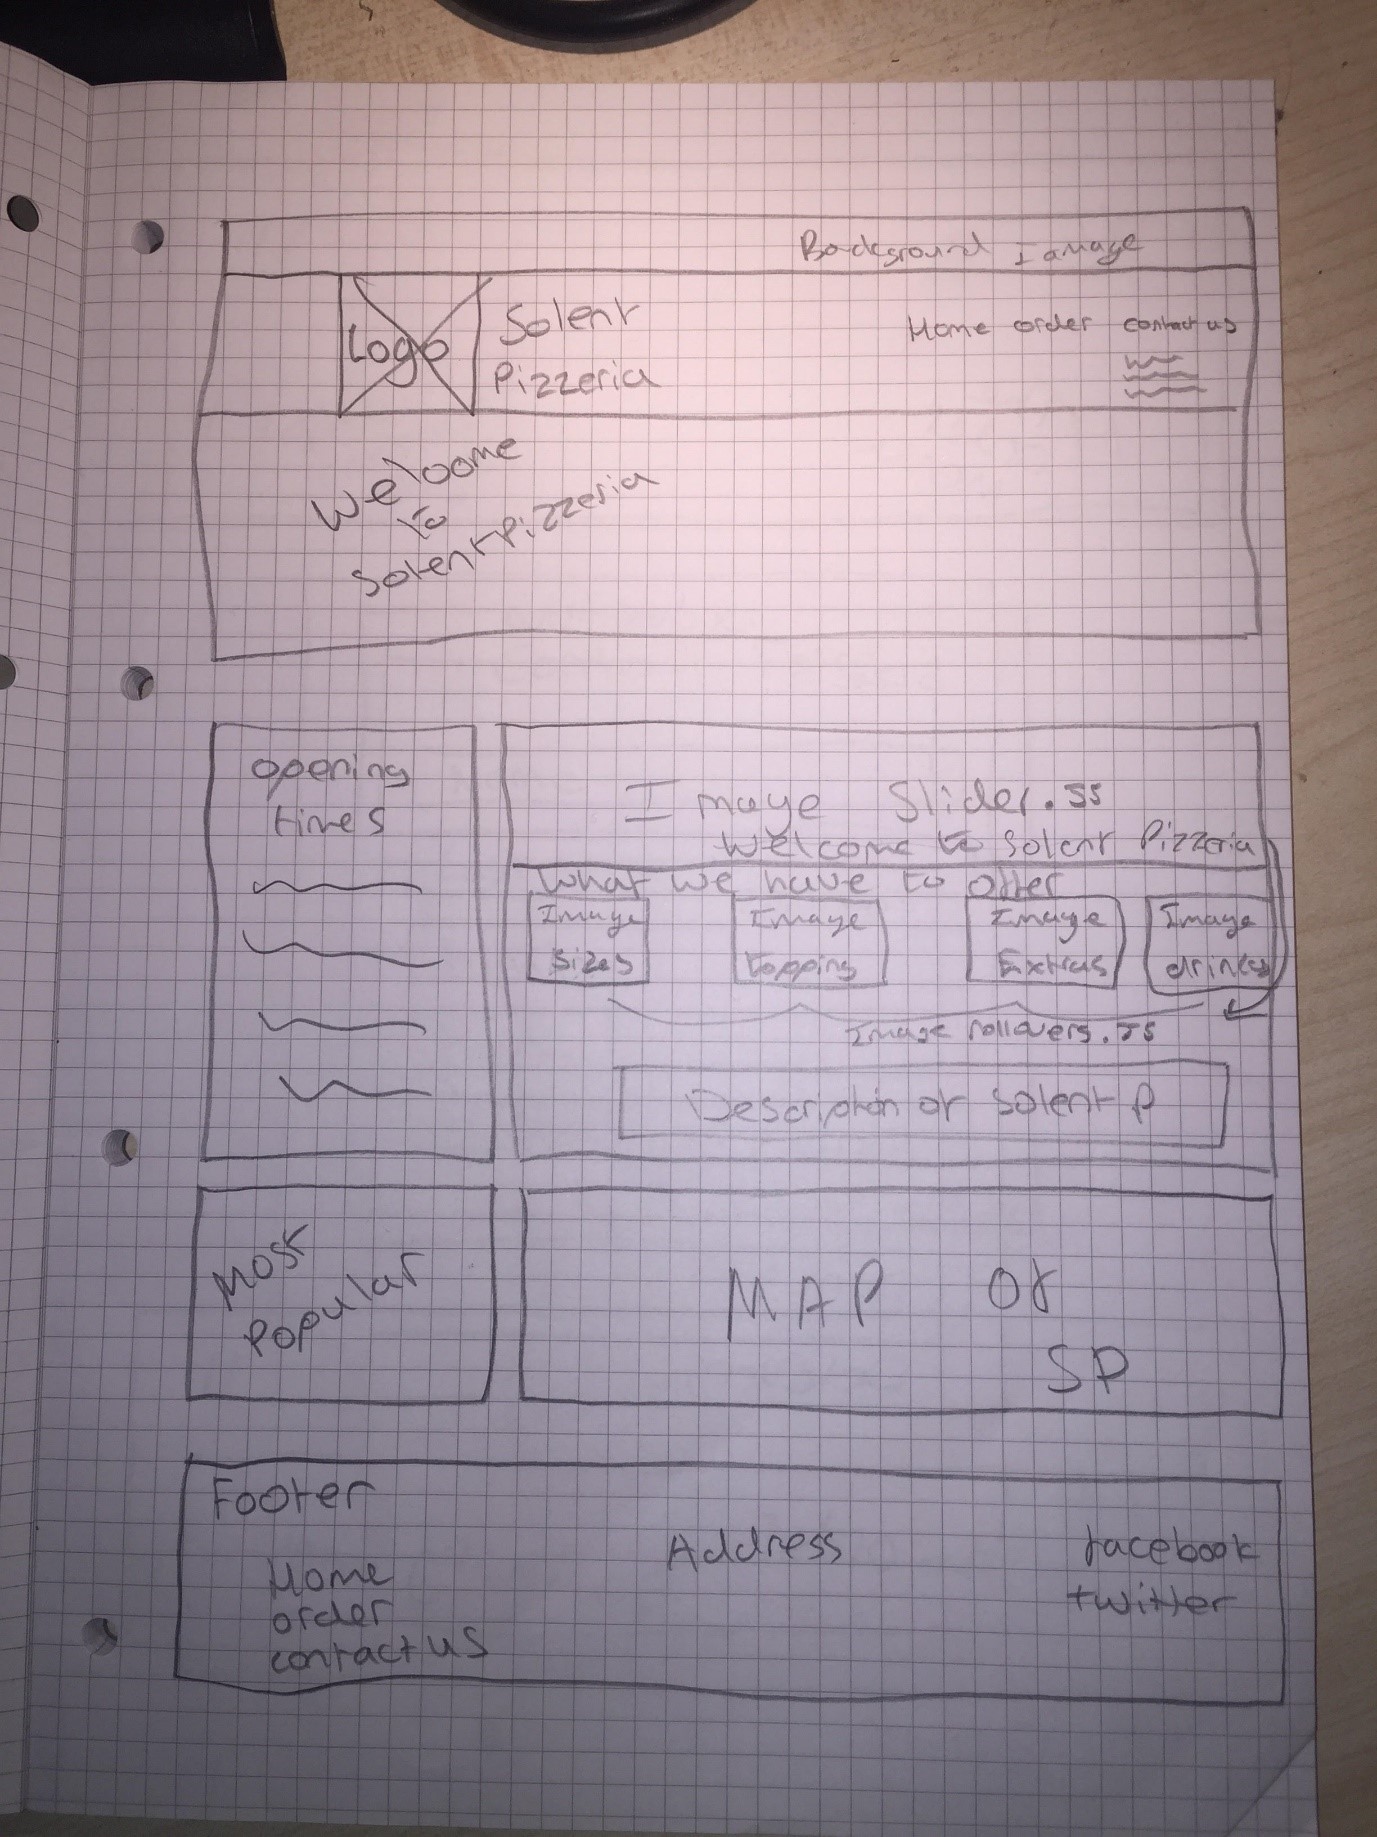 Background Image
Logo
Solent
Pizzeria
Home order contact us
Welcome
to
Solent Pizzeria
opening
times
Image Slider.JS
Welcome to Solent Pizzeria
What we have to offer
Image
Sizes
Image
topping
Image
Extras
Image
drinks
Image rollovers.JS
Description of Solent P
Most
Popular
MAP of
SP
Footer
Home
order
contact us
Address
facebook
twitter